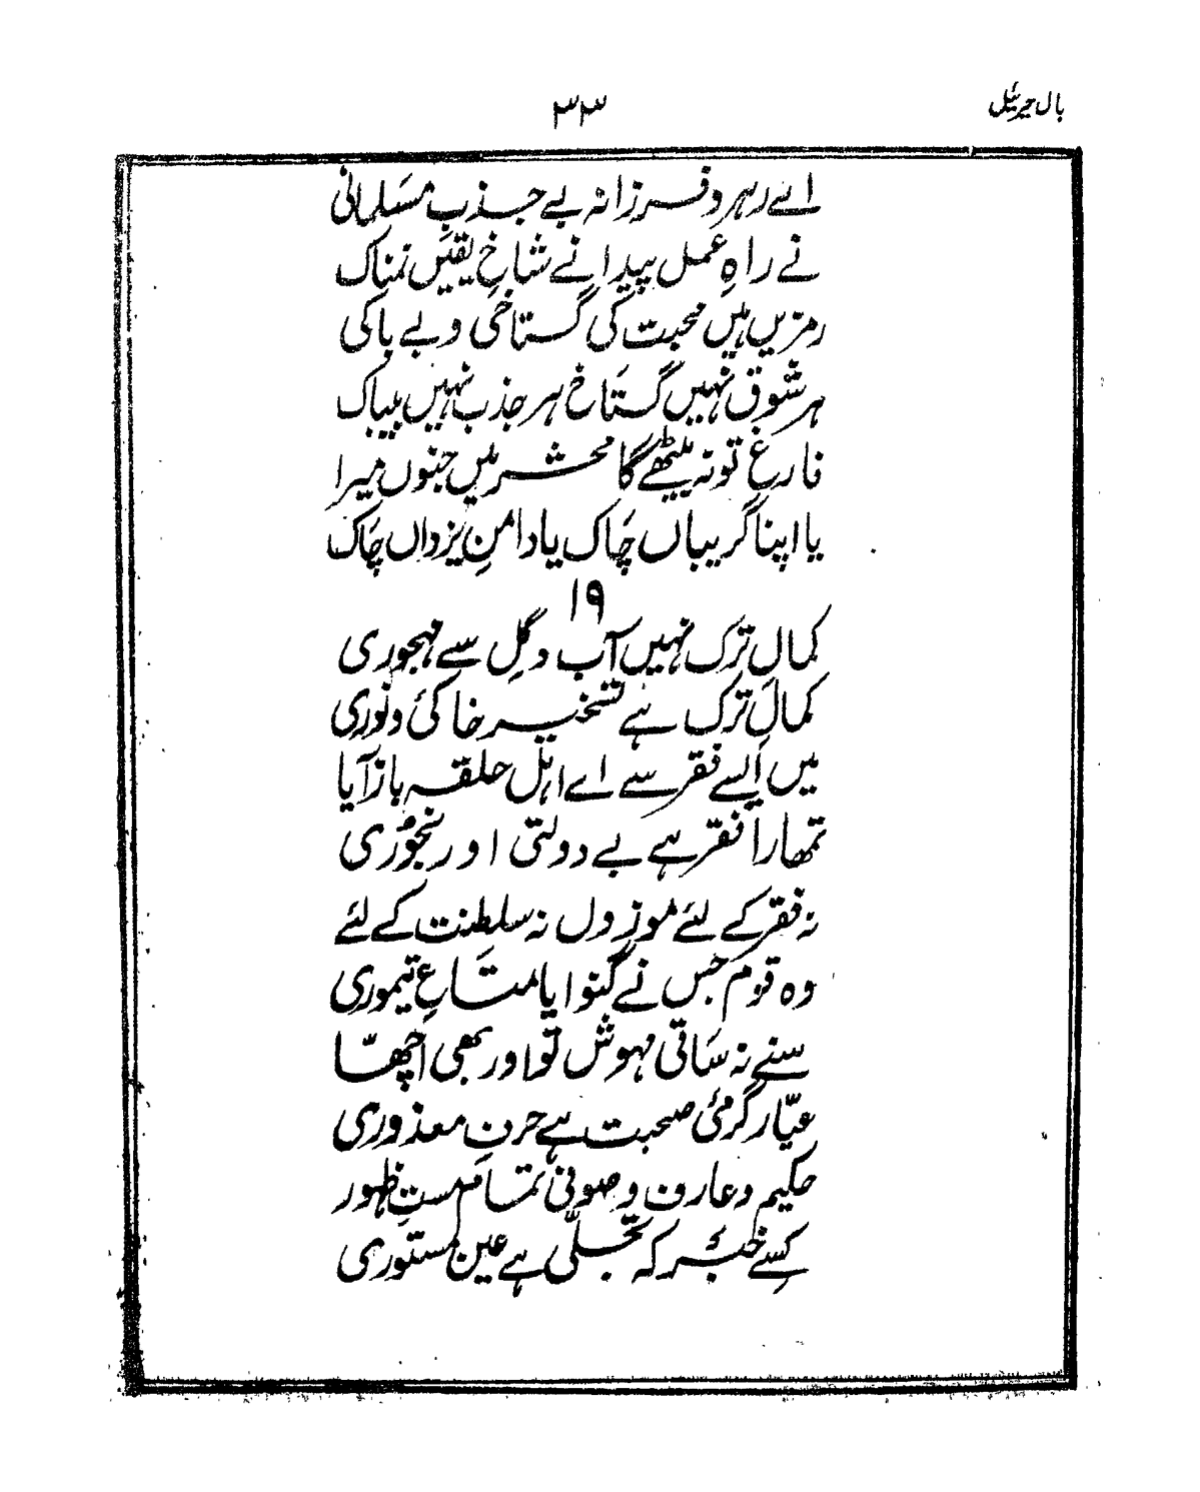 بال جبرئیل
۳۳
اے رہرو فرزانہ بے جذبِ مسلمانی
نے راہِ عمل پیدا نے شاخِ یقیں نمناک
رمزیں ہیں محبت کی گستاخی و بے باکی
ہر شوق نہیں گستاخ ہر جذب نہیں بیباک
فارغ تو نہ بیٹھے گا محشر میں جنوں میرا
یا اپنا گریباں چاک یا دامنِ یزداں چاک
۱۹
کمالِ ترک نہیں آب و گِل سے مہجوری
کمالِ ترک ہے تسخیر خاکیٔ و نوری
میں ایسے فقر سے اے اہل حلقہ باز آیا
تمھارا فقر ہے بے دولتی اور رنجوری
نہ فقر کے لئے موزوں نہ سلطنت کے لئے
وہ قوم جس نے گنوایا متاعِ تیموری
سنے نہ ساقی مہوش تو اور بھی اچھّا
عیّار گرمیٔ صحبت ہے حرفِ معذوری
حکیم و عارف و صوفی تمام مستِ ظہور
کسے خبر کہ تجلّی ہے عین مستوری